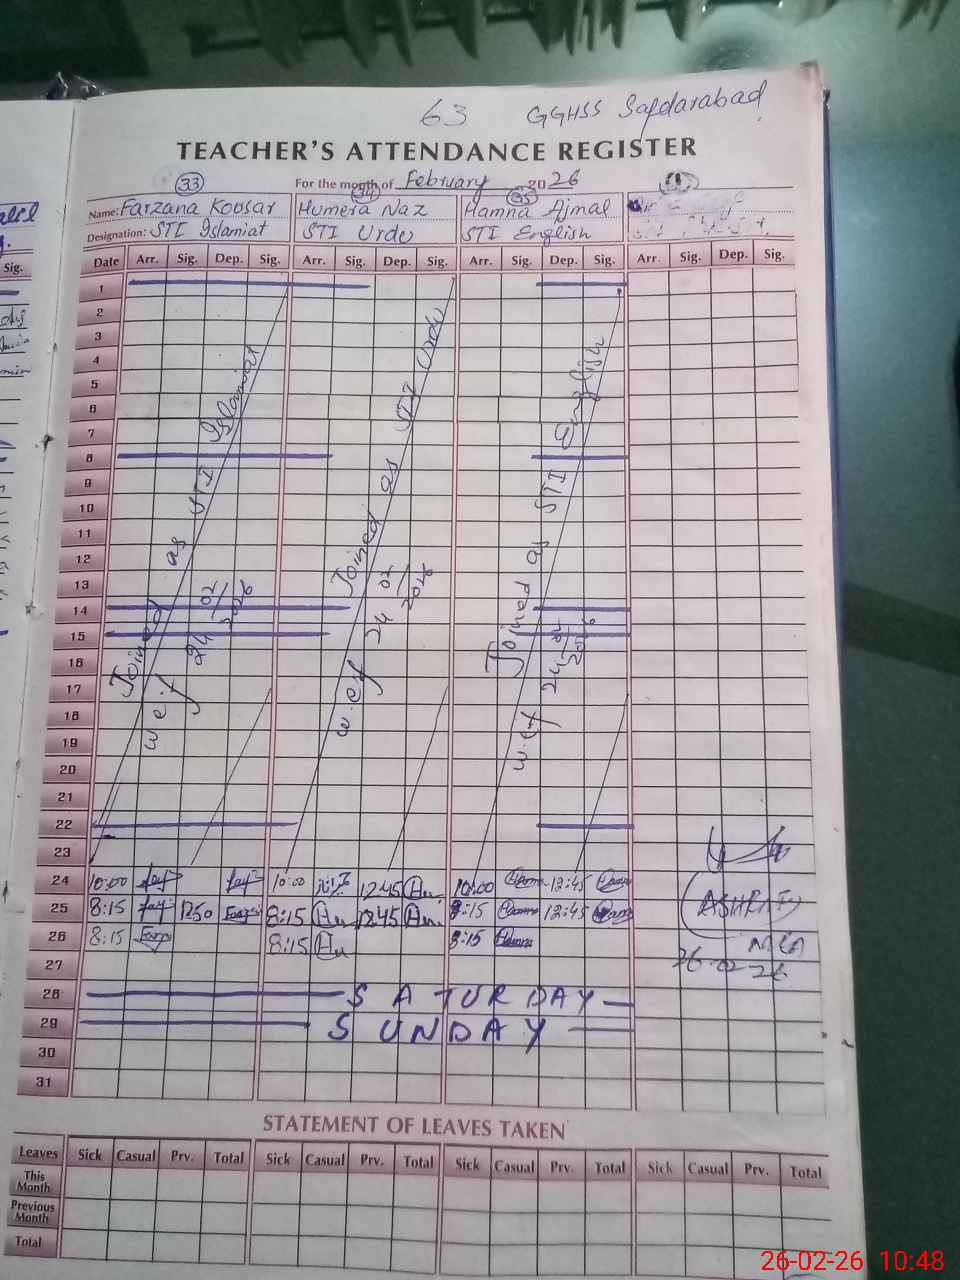 63 GGHSS Safdarabad
TEACHER'S ATTENDANCE REGISTER
33
For the month of February 2026
35
Name: Farzana Koosar Humera Naz Hamna Ajmal
Designation: STI Islamiat STI Urdu STI English
Sig.
Date Arr. Sig. Dep. Sig. Arr. Sig. Dep. Sig. Arr. Sig. Dep. Sig. Arr. Sig. Dep. Sig.
1
2
3
4
5
6
7
8
9
10
11
12
13
14
15
16
17
18
19
20
21
22
23
Joined as STI Islamiat
w.e.f 24 02/2026
Joined as STI Urdu
w.e.f 24 02/2026
Joined as STI English
w.e.f 24 02/2026
24 10:00 10:00 12:45 10:00 12:45
25 8:15 1250 8:15 12:45 8:15 12:45
26 8:15 8:15 8:15
(ASHRAF)
26-02-26
27
28 SATURDAY
29 SUNDAY
30
31
STATEMENT OF LEAVES TAKEN
Leaves Sick Casual Prv. Total Sick Casual Prv. Total Sick Casual Prv. Total Sick Casual Prv. Total
This Month
Previous Month
Total
26-02-26 10:48